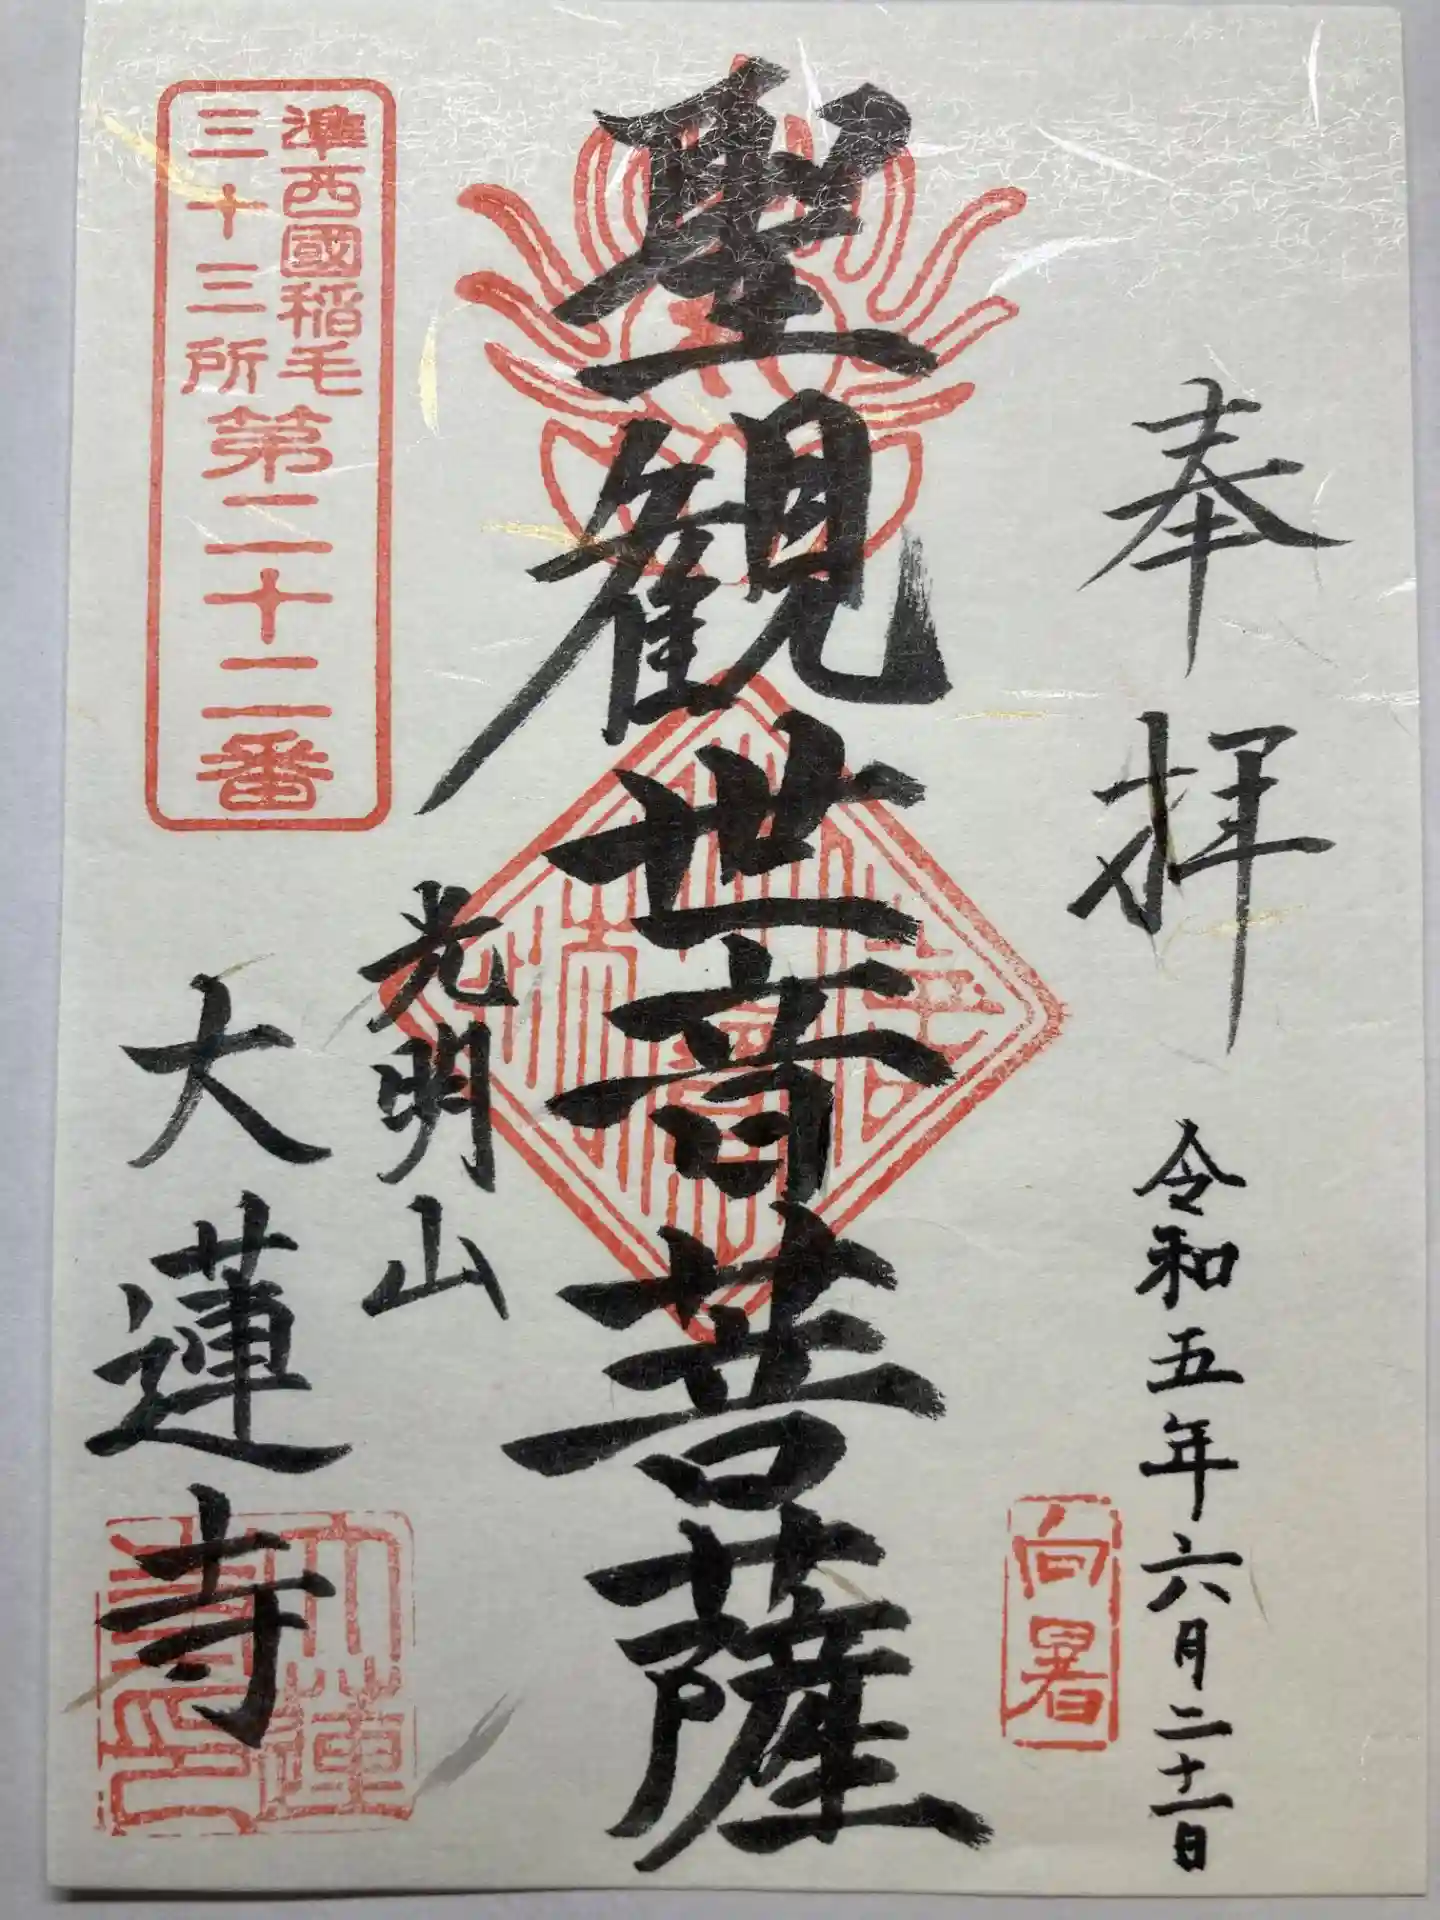 奉拝
令和五年六月二十一日
向暑
聖観世音菩薩
光明山
大蓮寺
準西國稲毛
三十三所
第二十二番
大蓮
寺印